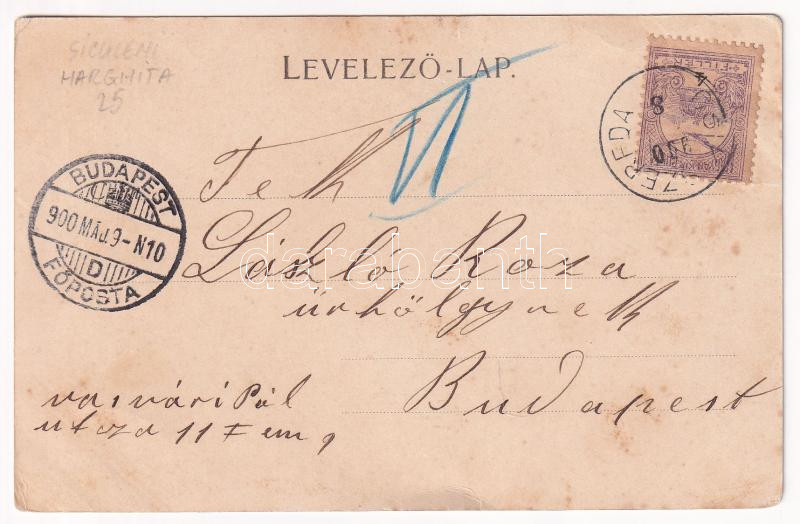 SICULENI
MARGHITA
25
LEVELEZŐ-LAP.
FILLÉR
SZEREDA
BUDAPEST
900 MÁJ. 9 - N10
D
FŐPOSTA
Tek
László Roza
úrhölgynek
Budapest
vasvári Pál
utcza 11 I em,
darabanth